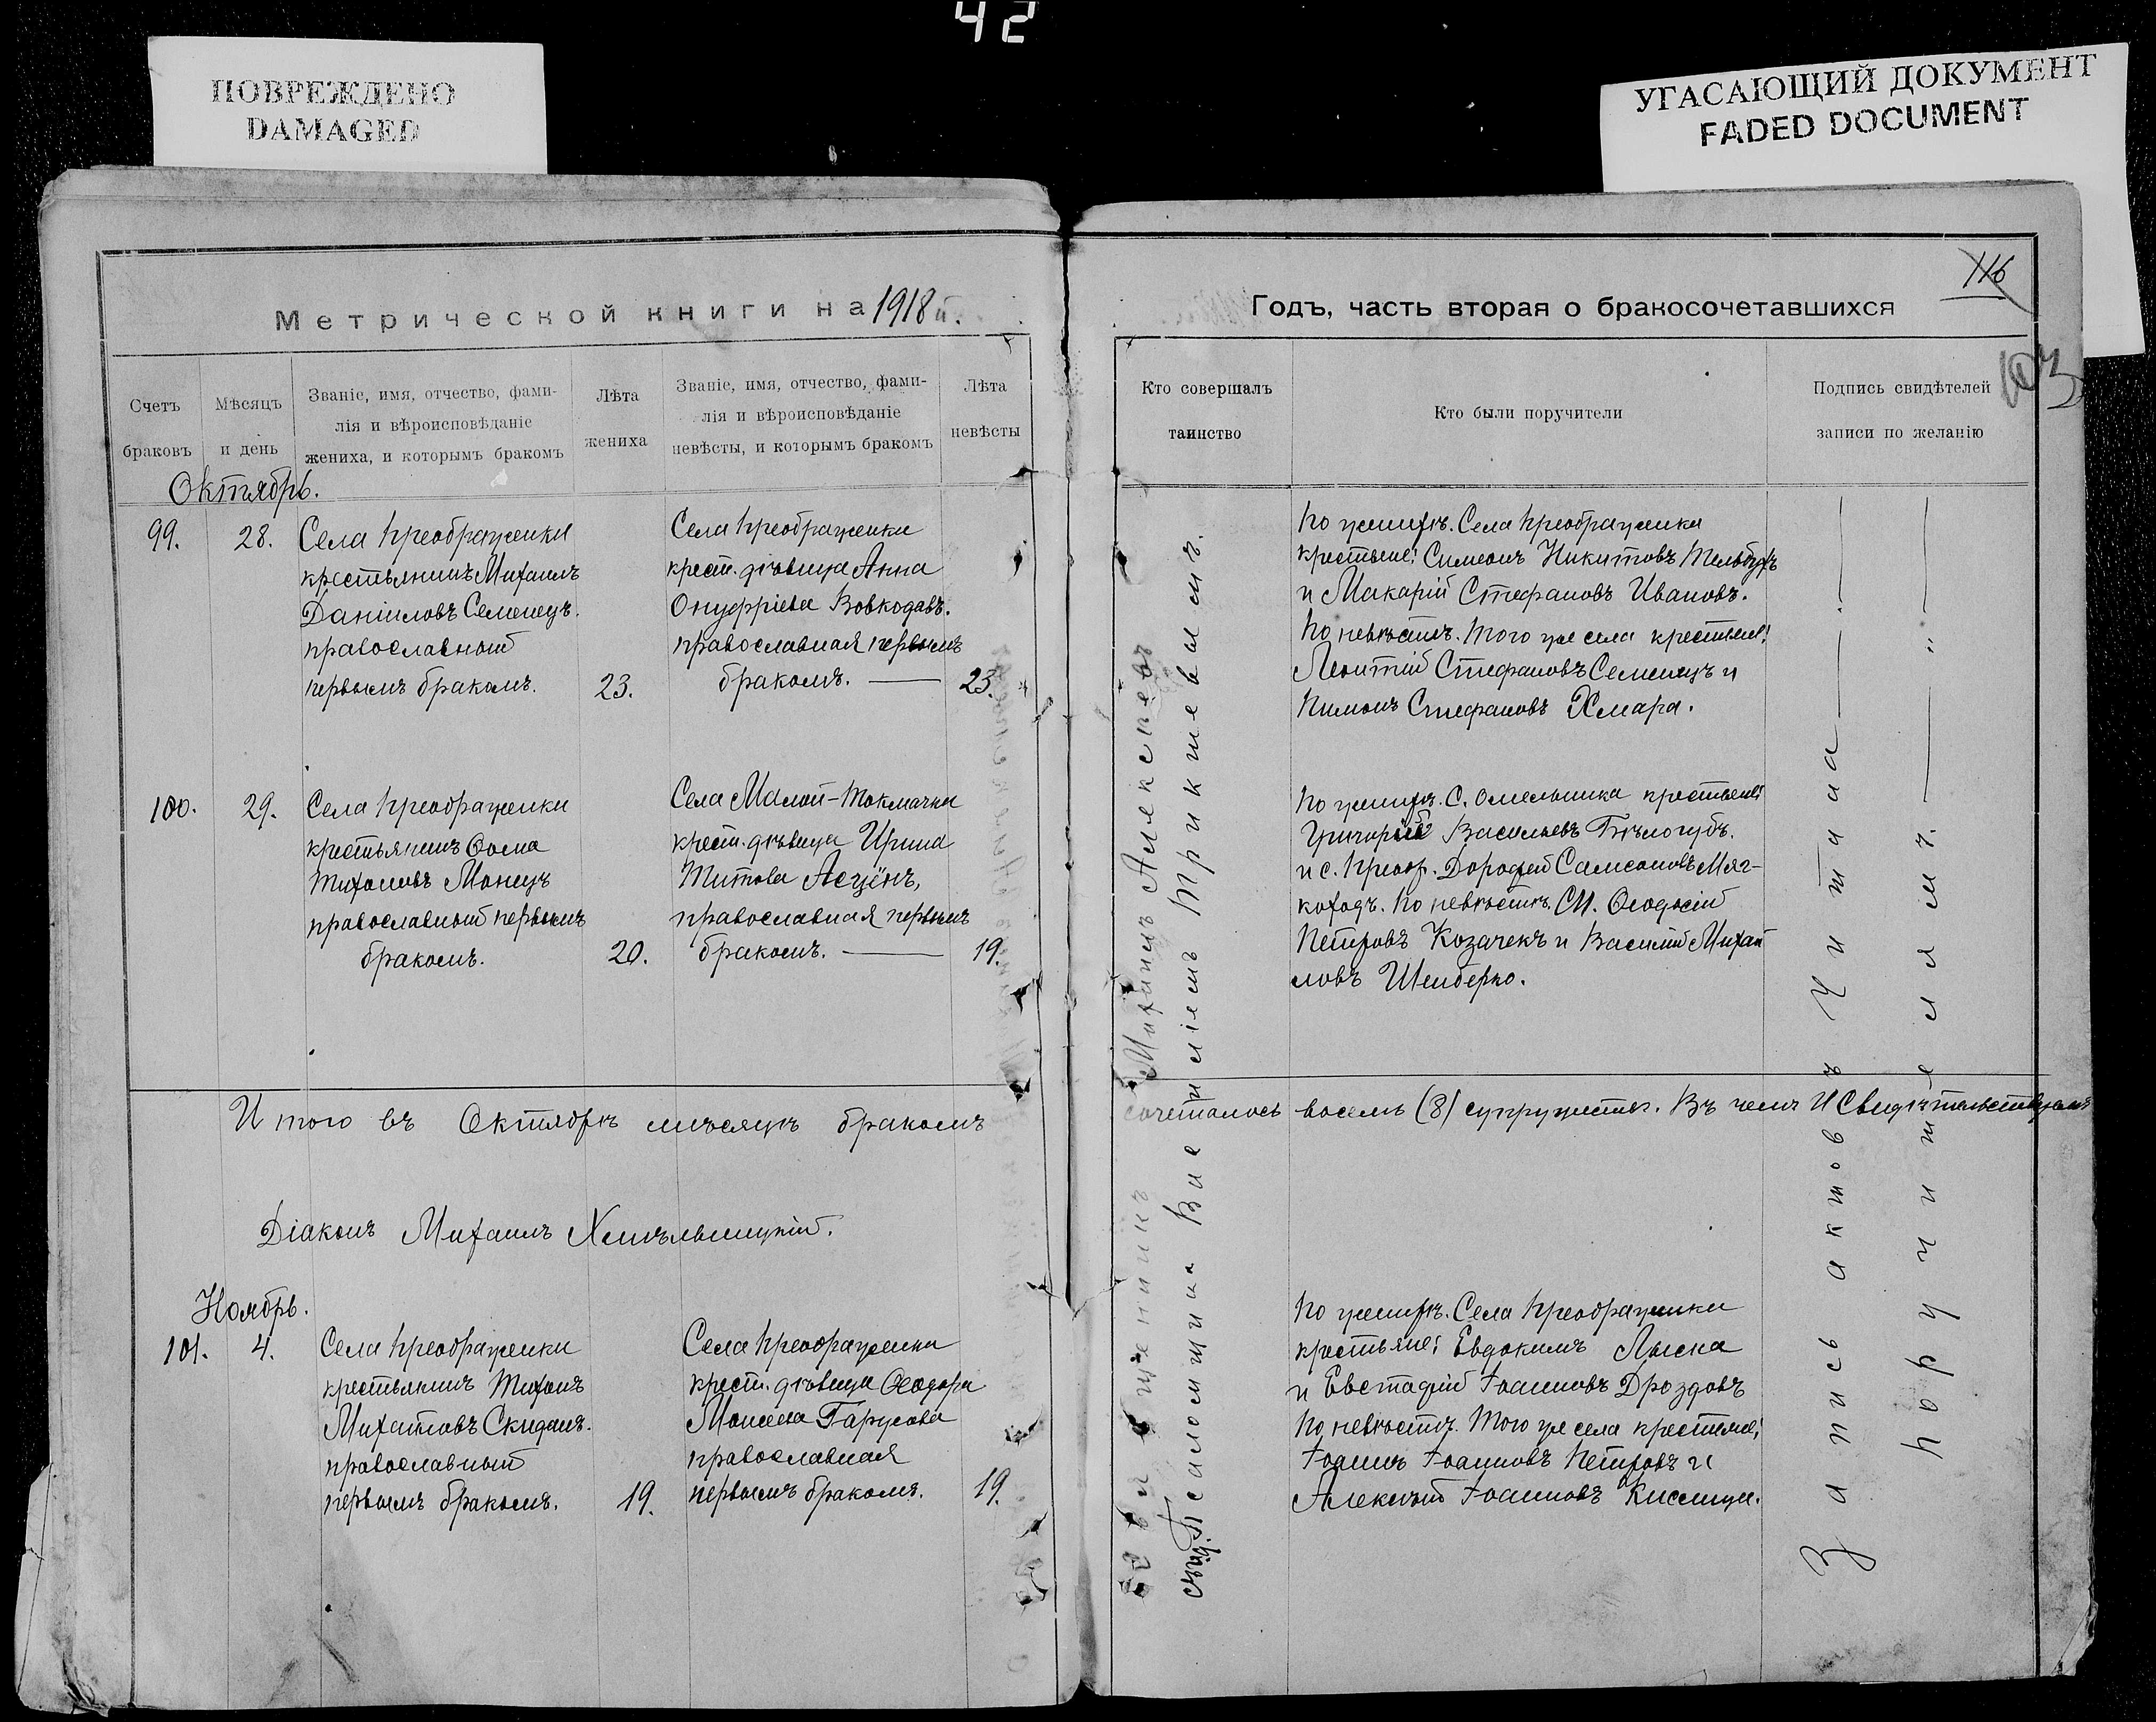 42
ПОВРЕЖДЕНО
DAMAGED
УГАСАЮЩИЙ ДОКУМЕНТ
FADED DOCUMENT
Метрической книги на 1918 й.
Счетъ
браковъ
Мѣсяцъ
и день
Званіе, имя, отчество, фами-
лія и вѣроисповѣданіе
жениха, и которымъ бракомъ
Лѣта
жениха
Званіе, имя, отчество, фами-
лія и вѣроисповѣданіе
невѣсты, и которымъ бракомъ
Лѣта
невѣсты
Октябрь.
99.
28.
Села Преображенки
крестьянинъ Михаилъ
Даніиловъ Семенецъ.
православный
первымъ бракомъ.
23.
Села Преображенки
крест. дѣвица Анна
Онуфріева Вовкодавъ.
православная первымъ
бракомъ.
23.
100.
29.
Села Преображенки
крестьянинъ Ѳома
Тихоновъ Монецъ
православный первымъ
бракомъ.
20.
Села Малой-Токмачки
крест. дѣвица Ирина
Титова
православная первымъ
бракомъ.
19.
Итого въ Октябрѣ мѣсяцѣ бракомъ
Діаконъ Михаилъ Хмѣльницкій.
Ноябрь.
101.
4.
Села Преображенки
крестьянинъ Тихонъ
Михаиловъ Скиданъ.
православный
первымъ бракомъ.
19.
Села Преображенки
крест. дѣвица Ѳеодора
Моисеева Гарусова
православная
первымъ бракомъ.
19.
116
103
Годъ, часть вторая о бракосочетавшихся
Кто совершалъ
таинство
Кто были поручители
Подпись свидѣтелей
записи по желанію
Священникъ Михаилъ Алексѣевъ
съ Псаломщика Василіемъ Трикшевымъ.
По женихѣ. Села Преображенки
крестьяне: Симеонъ Никитовъ
и Макарій Стефановъ Ивановъ.
По невѣстѣ. Того же села крестьяне:
Леонтій Стефановъ Семенецъ и
Пименъ Стефановъ Хмара.
По женихѣ. С. Омельника крестьяне:
Григорій Васильевъ Бѣлогубъ.
и с. Преобр. Дорофей Самсоновъ Мяг-
коходъ. По невѣстѣ. СМ. Ѳеодосій
Петровъ Козачекъ и Василій Михаи
ловъ Шемберко.
сочеталось восемь (8) супружествъ. Въ чемъ И Свидѣтельствуемъ
По женихѣ. Села Преображенки
крестьяне: Евдокимъ Лыска
и Евстафій Іоанновъ Дроздовъ
По невѣстѣ. Того же села крестьяне:
Іоаннъ Іоанновъ Петровъ и
Алексѣй Іоанновъ Кислица.
Запись актовъ читана
поручителямъ.